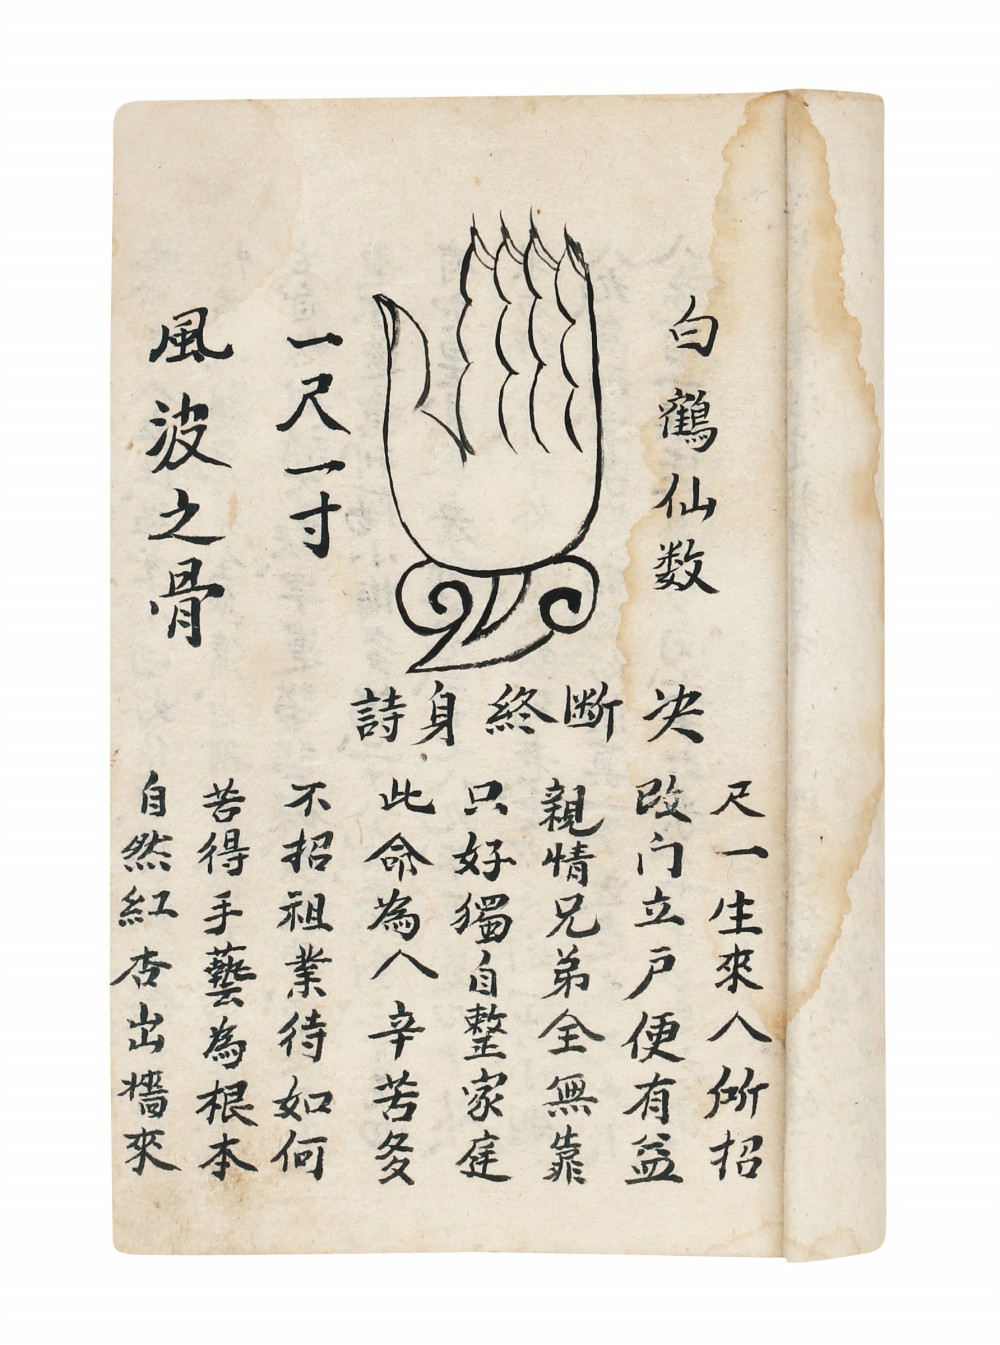 白鶴仙数
一尺一寸
風波之骨
决断終身詩
尺一生來人所招
改门立戸便有益
親情兄弟全無靠
只好獨自整家庭
此命為人辛苦多
不招祖業待如何
苦得手藝為根本
自然紅杏出墻來